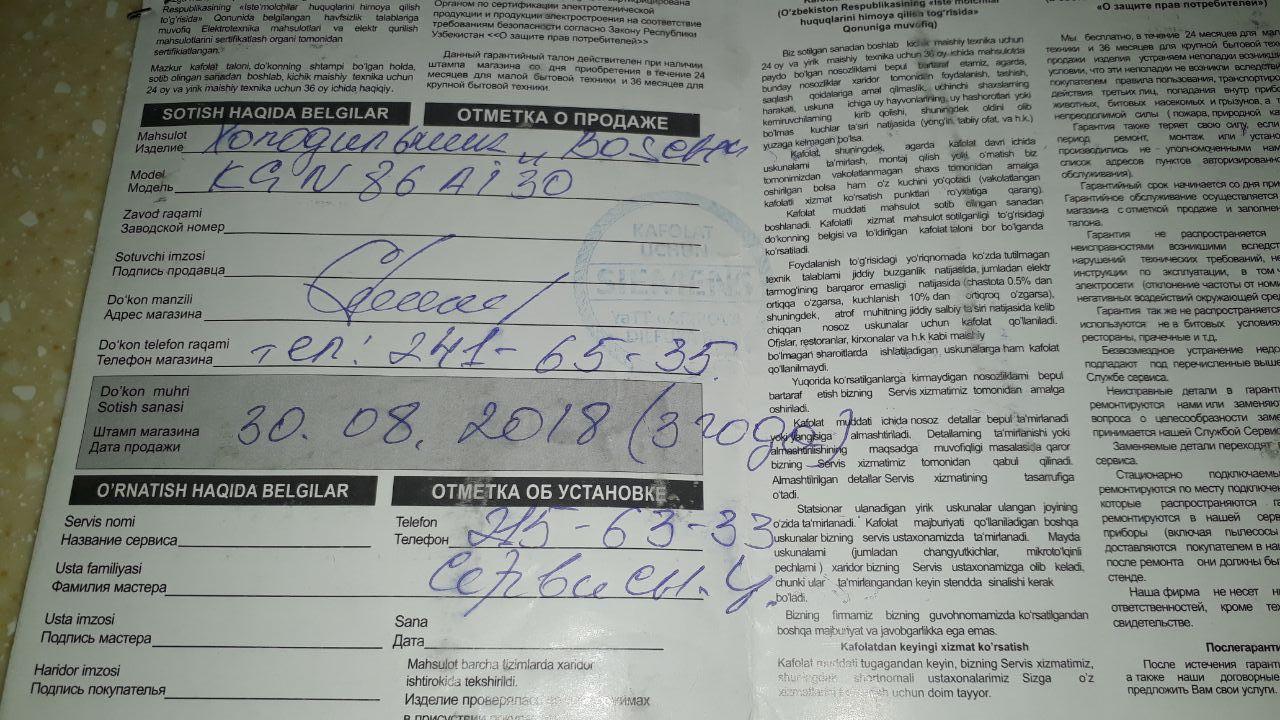 Respublikasining «Iste'molchilar huquqlarini himoya qilish
to'g'risida» Qonunida belgilangan havfsizlik talablariga
muvofiq Elektrotexnika mahsulotlari va elektr qurilish
mahsulotlarini sertifikatlash organi tomonidan
sertifikatlangan.
Mazkur kafolat taloni, do'konning shtampi bo'lgan holda,
sotib olingan sanadan boshlab, kichik maishiy texnika uchun
24 oy va yirik maishiy texnika uchun 36 oy ichida haqiqiy.
Органом по сертификации электротехнической
продукции и продукции электростроения на соответствие
требованиям безопасности согласно Закону Республики
Узбекистан <<О защите прав потребителей>>
Данный гарантийный талон действителен при наличии
штампа магазина со дня приобретения в течение 24
месяцев для малой бытовой техники и 36 месяцев для
крупной бытовой техники.
SOTISH HAQIDA BELGILAR
ОТМЕТКА О ПРОДАЖЕ
Mahsulot
Изделие Холодильник и Bosch
Model
Модель KGN86AI30
Zavod raqami
Заводской номер
Sotuvchi imzosi
Подпись продавца
Do'kon manzili
Адрес магазина
Do'kon telefon raqami
Телефон магазина тел: 241-65-35.
Do'kon muhri
Sotish sanasi
Штамп магазина
Дата продажи
30.08.2018 (3 года)
KAFOLAT
UCHUN
SIEMENS
O'RNATISH HAQIDA BELGILAR
ОТМЕТКА ОБ УСТАНОВКЕ
Servis nomi
Название сервиса
Telefon
Телефон 215-63-33
Usta familiyasi
Фамилия мастера
Usta imzosi
Подпись мастера
Sana
Дата
Haridor imzosi
Подпись покупателья
Mahsulot barcha tizimlarda xaridor
ishtirokida tekshirildi.
Изделие проверялась
в присутствии
(O'zbekiston Respublikasining «Iste'molchilar
huquqlarini himoya qilish to'g'risida»
Qonuniga muvofiq)
Biz sotilgan sanadan boshlab kichik maishiy texnika uchun
24 oy va yirik maishiy texnika uchun 36 oy ichida mahsulotda
paydo bo'lgan nosozliklarni bepul bartaraf etamiz, agarda,
bunday nosozliklar xaridor tomonidan foydalanish, tashish,
saqlash qoidalariga amal qilmaslik, uchinchi shaxslarning
harakati, uskuna ichiga uy hayvonlarining, uy hashorotlari yoki
kemiruvchilarning kirib qolishi, shuningdek oldini olib
bo'lmas kuchlar ta'siri natijasida (yong'in, tabiiy ofat, va h.k.)
yuzaga kelmagan bo'lsa.
Kafolat, shuningdek, agarda kafolat davri ichida
uskunalami ta'mirlash, montaj qilish yoki o'rnatish biz
tomonimizdan vakolatlanmagan shaxs tomonidan amalga
oshirilgan bolsa ham o'z kuchini yo'qotadi (vakolatlangan
kafolatli xizmat ko'rsatish punktlari ro'yxatiga qarang).
Kafolat muddati mahsulot sotib olingan sanadan
boshlanadi. Kafolatli xizmat mahsulot sotilganligi to'g'risidagi
do'konning belgisi va to'ldirilgan kafolat taloni bor bo'lganda
ko'rsatiladi.
Foydalanish to'g'risidagi yo'riqnomada ko'zda tutilmagan
texnik talablarni jiddiy buzganlik natijasida, jumladan elektr
tarmog'ining barqaror emasligi natijasida (chastota 0.5% dan
ortiqqa o'zgarsa, kuchlanish 10% dan ortiqroq o'zgarsa),
shuningdek, atrof muhitning jiddiy salbiy ta'siri natijasida kelib
chiqqan nosoz uskunalar uchun kafolat qo'llaniladi.
Ofislar, restoranlar, kirxonalar va h.k kabi maishiy
bo'lmagan sharoitlarda ishlatiladigan uskunalarga ham kafolat
qo'llanilmaydi.
Yuqorida ko'rsatilganlarga kirmaydigan nosozliklarni bepul
bartaraf etish bizning Servis xizmatimiz tomonidan amalga
oshiriladi.
Kafolat muddati ichida nosoz detallar bepul ta'mirlanadi
yoki yangisiga almashtiriladi. Detallarning ta'mirlanishi yoki
almashtirilishining maqsadga muvofiqligi masalasida qaror
bizning Servis xizmatimiz tomonidan qabul qilinadi.
Almashtirilgan detallar Servis xizmatining tasarrufiga
o'tadi.
Statsionar ulanadigan yirik uskunalar ulangan joyining
o'zida ta'mirlanadi. Kafolat majburiyati qo'llaniladigan boshqa
uskunalar bizning servis ustaxonamizda ta'mirlanadi. Mayda
uskunalarni (jumladan changyutkichlar, mikroto'lqinli
pechlarni) xaridor bizning Servis ustaxonamizga olib keladi,
chunki ular ta'mirlangandan keyin stendda sinalishi kerak
bo'ladi.
Bizning firmamiz bizning guvohnomamizda ko'rsatilgandan
boshqa majburiyat va javobgarlikka ega emas.
Kafolatdan keyingi xizmat ko'rsatish
Kafolat muddati tugagandan keyin, bizning Servis xizmatimiz,
shuningdek shartnomali ustaxonalarimiz Sizga o'z
xizmatlarini ko'rsatish uchun doim tayyor.
«О защите прав потребителей»)
Мы бесплатно, в течение 24 месяцев для малой
техники и 36 месяцев для крупной бытовой
продажи изделия устраняем неполадки
условии, что эти неполадки не возникли
покупателем правила пользования,
действия третьих лиц, попадания внутр
животных, битовых насекомых и грызунов, а
непреодолимой силы (пожара, природной
Гарантия также теряет свою силу, если
период ремонт, монтаж или
производились не уполномоченными
список адресов пунктов
обслуживания).
Гарантийный срок начинается со дня
Гарантийное обслуживание осуществляется
магазина с отметкой продаже и
талона.
Гарантия не распространяется
неисправностями возникшими
нарушений технических требований,
инструкции по эксплуатации, в том
электросети (отклонение частоты от
негативных воздействий окружающей
Гарантия так же не распространяется
используются не в битовых условиях
рестораны, прачечные и т.д.
Безвозмездное устранение
подпадают под перечисленные
Службе сервиса.
Неисправные детали в
ремонтируются нами или
вопроса о целесообразности
принимается нашей Службой
Заменяемые детали переходят
сервиса.
Стационарно подключаемые
ремонтируются по месту
которые распространяются
ремонтируются в нашей
приборы (включая пылесосы
доставляются покупателем в
после ремонта они должны
стенде.
Наша фирма не несет
ответственностей, кроме
свидетельстве.
После истечения
а также наши договорные
предложить Вам свои услуги.